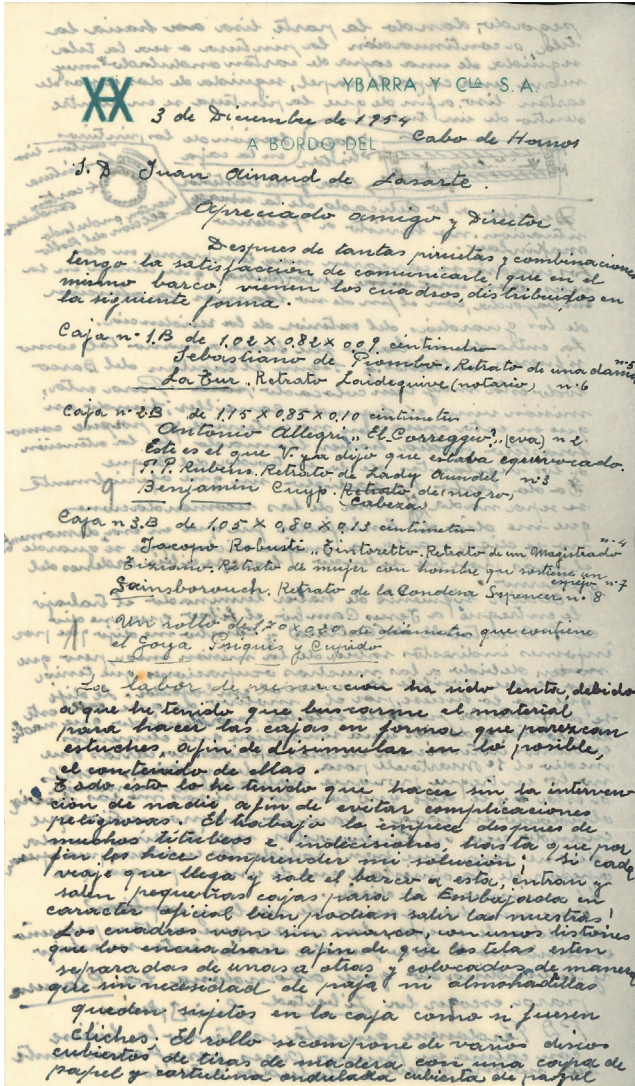 YBARRA Y Cía. S. A.
3 de Diciembre de 1954
A BORDO DEL Cabo de Hornos
S. D. Juan Ainaud de Lasarte.
Apreciado amigo y Director
Despues de tantas piruetas y combinaciones
tengo la satisfacción de comunicarle, que en el
mismo barco, vienen los cuadros, distribuidos en
la siguiente forma.
Caja nº 1.B de 1.02 x 0.82 x 0,09 centimetro
Sebastiano de Piombo. Retrato de una dama nº 5
La Tur. Retrato Laideguive (notario) nº 6
Caja nº 2.B de 1,15 x 0,85 x 0,10 centimetro
Antonio Allegri "El Correggio?" (eva) nº 2
Este es el que V. ya dijo que estaba equivocado.
P. P. Rubens. Retrato de Lady Arundel nº 3
9 Benjamin Cuyp. Retrato de (negro)
(Cabeza)
Caja nº 3.B de 1,05 x 0,80 x 0,13 centimetro
Jacopo Robusti "Tintoretto. Retrato de un Magistrado nº 4
Tiziano. Retrato de mujer con hombre que sostiene un
espejo nº 7
Gainsborouch. Retrato de la Condesa Sspencer nº 8
Un rollo de 1,70 x 0,20 de diámetro que contiene
el Goya Psiquis y Cupido
La labor de preparacion ha sido lenta, debido
a que he tenido que buscarme el material
para hacer las cajas en forma que parezcan
estuches, afin de disimular en lo posible,
el contenido de ellas.
Todo esto lo he tenido que hacer sin la interven
ción de nadie, afin de evitar complicaciones
peligrosas. El trabajo lo empecé despues de
muchos titubeos e indecisiones, hasta que por
fin les hice comprender mi solución; Si cada
viaje que llega y sale el barco a esta, entran y
salen pequeñas cajas para la Embajada en
caracter oficial bien podian salir las nuestras!
Los cuadros van sin marco, con unos listones
que los encuadran afin de que las telas esten
separadas de unas a otras y colocados de manera
que sin necesidad de paja ni almohadillas
queden sujetos en la caja como si fuesen
cliches. El rollo se compone de varios discos
cubiertos de tiras de madera con una capa de
papel y cartulina ondulada cubierta de papel